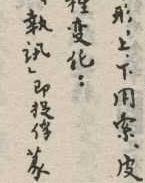 形，上、下用索、皮
種变化：
「執訊」即捉俘蒙